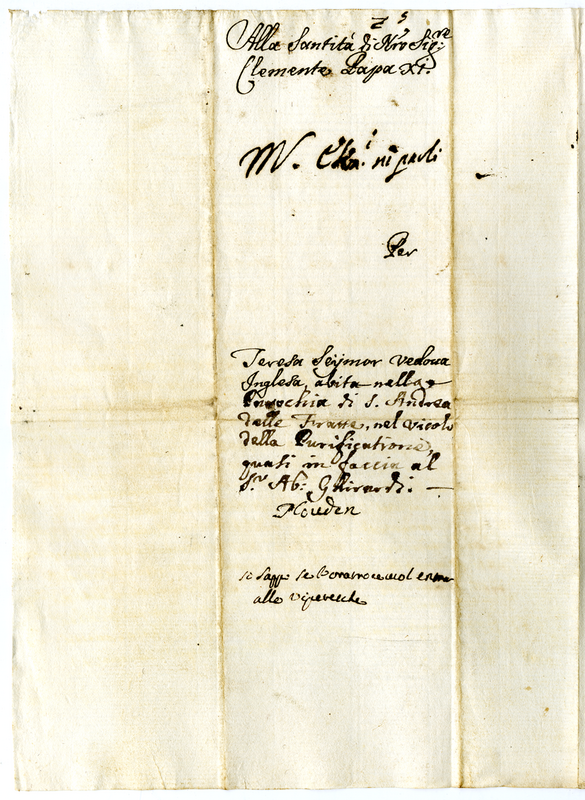 Alla Santità di Nro Sig:re
Clemente Papa XI.
M.
ni parli
Per
Teresa Seijmor vedoua
Inglesa, abita nella
Parochia di S. Andrea
delle Fratte, nel vicolo
della Purificatione,
quasi in faccia al
S.r Ab: Ghirardi:
Plouden
se
alle Viperesche